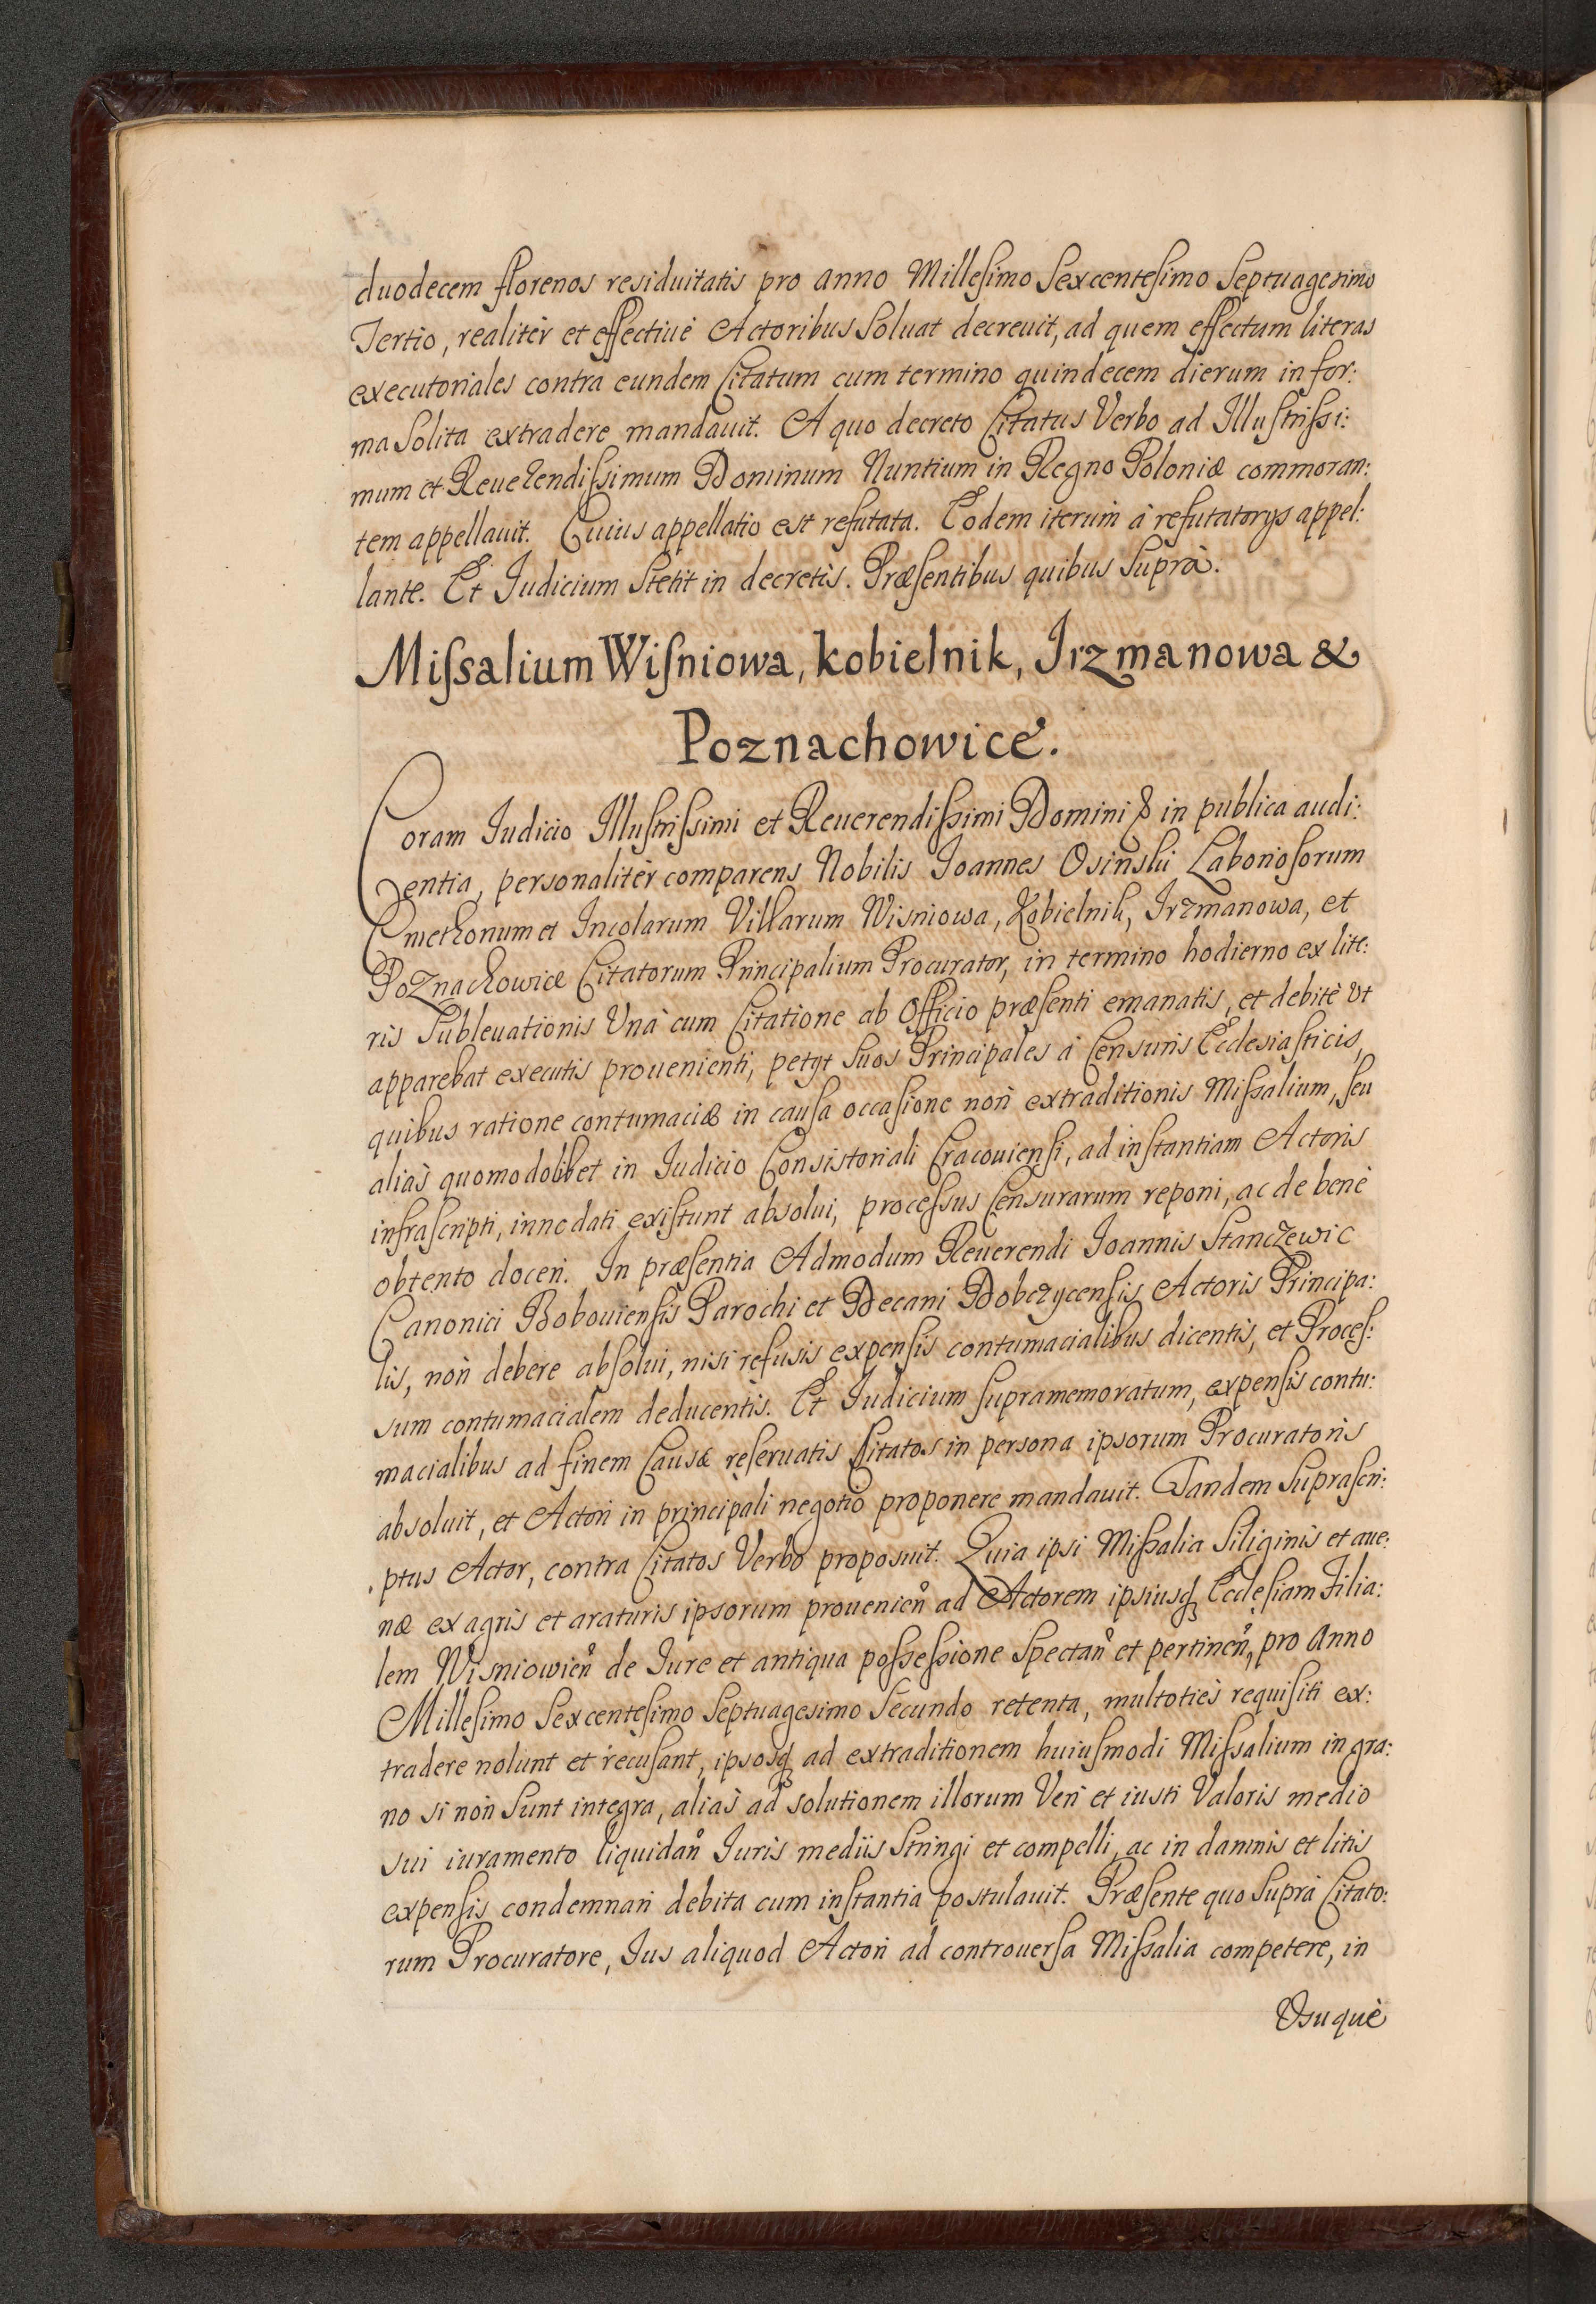 duodecem florenos residuitatis pro anno Milleſimo Sexcenteſimo Septuagesimo
Tertio, realitèr et effectiuè Actoribus Soluat decreuit, ad quem effectum literas
executoriales contra eundem Citatum cum termino quindecem dierum in for:
ma Solita extradere mandauit. A quo decreto Citatus Verbo ad Illuſtriſsi:
mum et Reuerendiſsimum Dominum Nuntium in Regno Poloniæ commoran:
tem appellauit. Cuius appellatio est refutata. Eodem iterum à refutatorys appel:
lante. Et Iudicium Stetit in decretis. Præſentibus quibus Suprà.
Miſsalium Wiſniowa, kobielnik, Irzmanowa &
Poznachowice.
Coram Iudicio Illuſtriſsimi et Reuerendiſsimi Domini & in publica audi:
entia, personalitèr comparens Nobilis Ioannes Osinski Laborioſorum
Cmethonum et Incolarum Villarum Wisniowa, Kobielnik, Irzmanowa, et
Poznachowicæ Citatorum Principalium Procurator, in termino hodierno ex lite:
ris Subleuationis Vnà cum Citatione ab Officio præſenti emanatis, et debitè Vt
apparebat executis prouenienti, petyt Suos Principales à Censuris Eccleſiaſticis,
quibus ratione contumaciæ in cauſa occaſione non extraditionis Miſsalium, ſeu
aliàs quomodolibet in Iudicio Conſistoriali Cracouienſi, ad inſtantiam Actoris
infraſcripti, innodati exiſtunt absolui, proceſsus Censurarum reponi, ac de benè
obtento doceri. In præſentia Admodum Reuerendi Ioannis Stanczewic
Canonici Bobouienſis Parochi et Decani Dobczycenſis Actoris Principa:
lis, non debere abſolui, niſi refusis expenſis contumacialibus dicentis, et Proceſ:
sum contumacialem deducentis. Et Iudicium ſupramemoratum, expenſis contu:
macialibus ad finem Causæ reſeruatis Citatos in persona ipsorum Procuratoris
absoluit, et Actori in principali negotio proponere mandauit. Tandem Supraſcri:
ptus Actor, contra Citatos Verbo proposuit. Quia ipsi Miſsalia Siliginis et aue:
næ ex agris et araturis ipsorum prouenien̄ ad Actorem ipsiusq́ Eccleſiam Filia:
lem Wisniowien̄ de Iure et antiqua poſseſsione Spectan̄ et pertinen̄, pro Anno
Milleſimo Sexcenteſimo Septuagesimo Secundo retenta, multotiès requiſiti ex:
tradere nolunt et recuſant, ipsosq́ ad extraditionem huiuſmodi Miſsalium in gra:
no si non Sunt integra, aliàs ad solutionem illorum Veri et iusti Valoris medio
sui iuramento liquidan̄ Iuris mediis Stringi et compelli, ac in damnis et litis
expenſis condemnari debita cum inſtantia postulauit. Præſente quo Suprà Citato:
rum Procuratore, Ius aliquod Actori ad controuerſa Miſsalia competere, in
Vsuquè